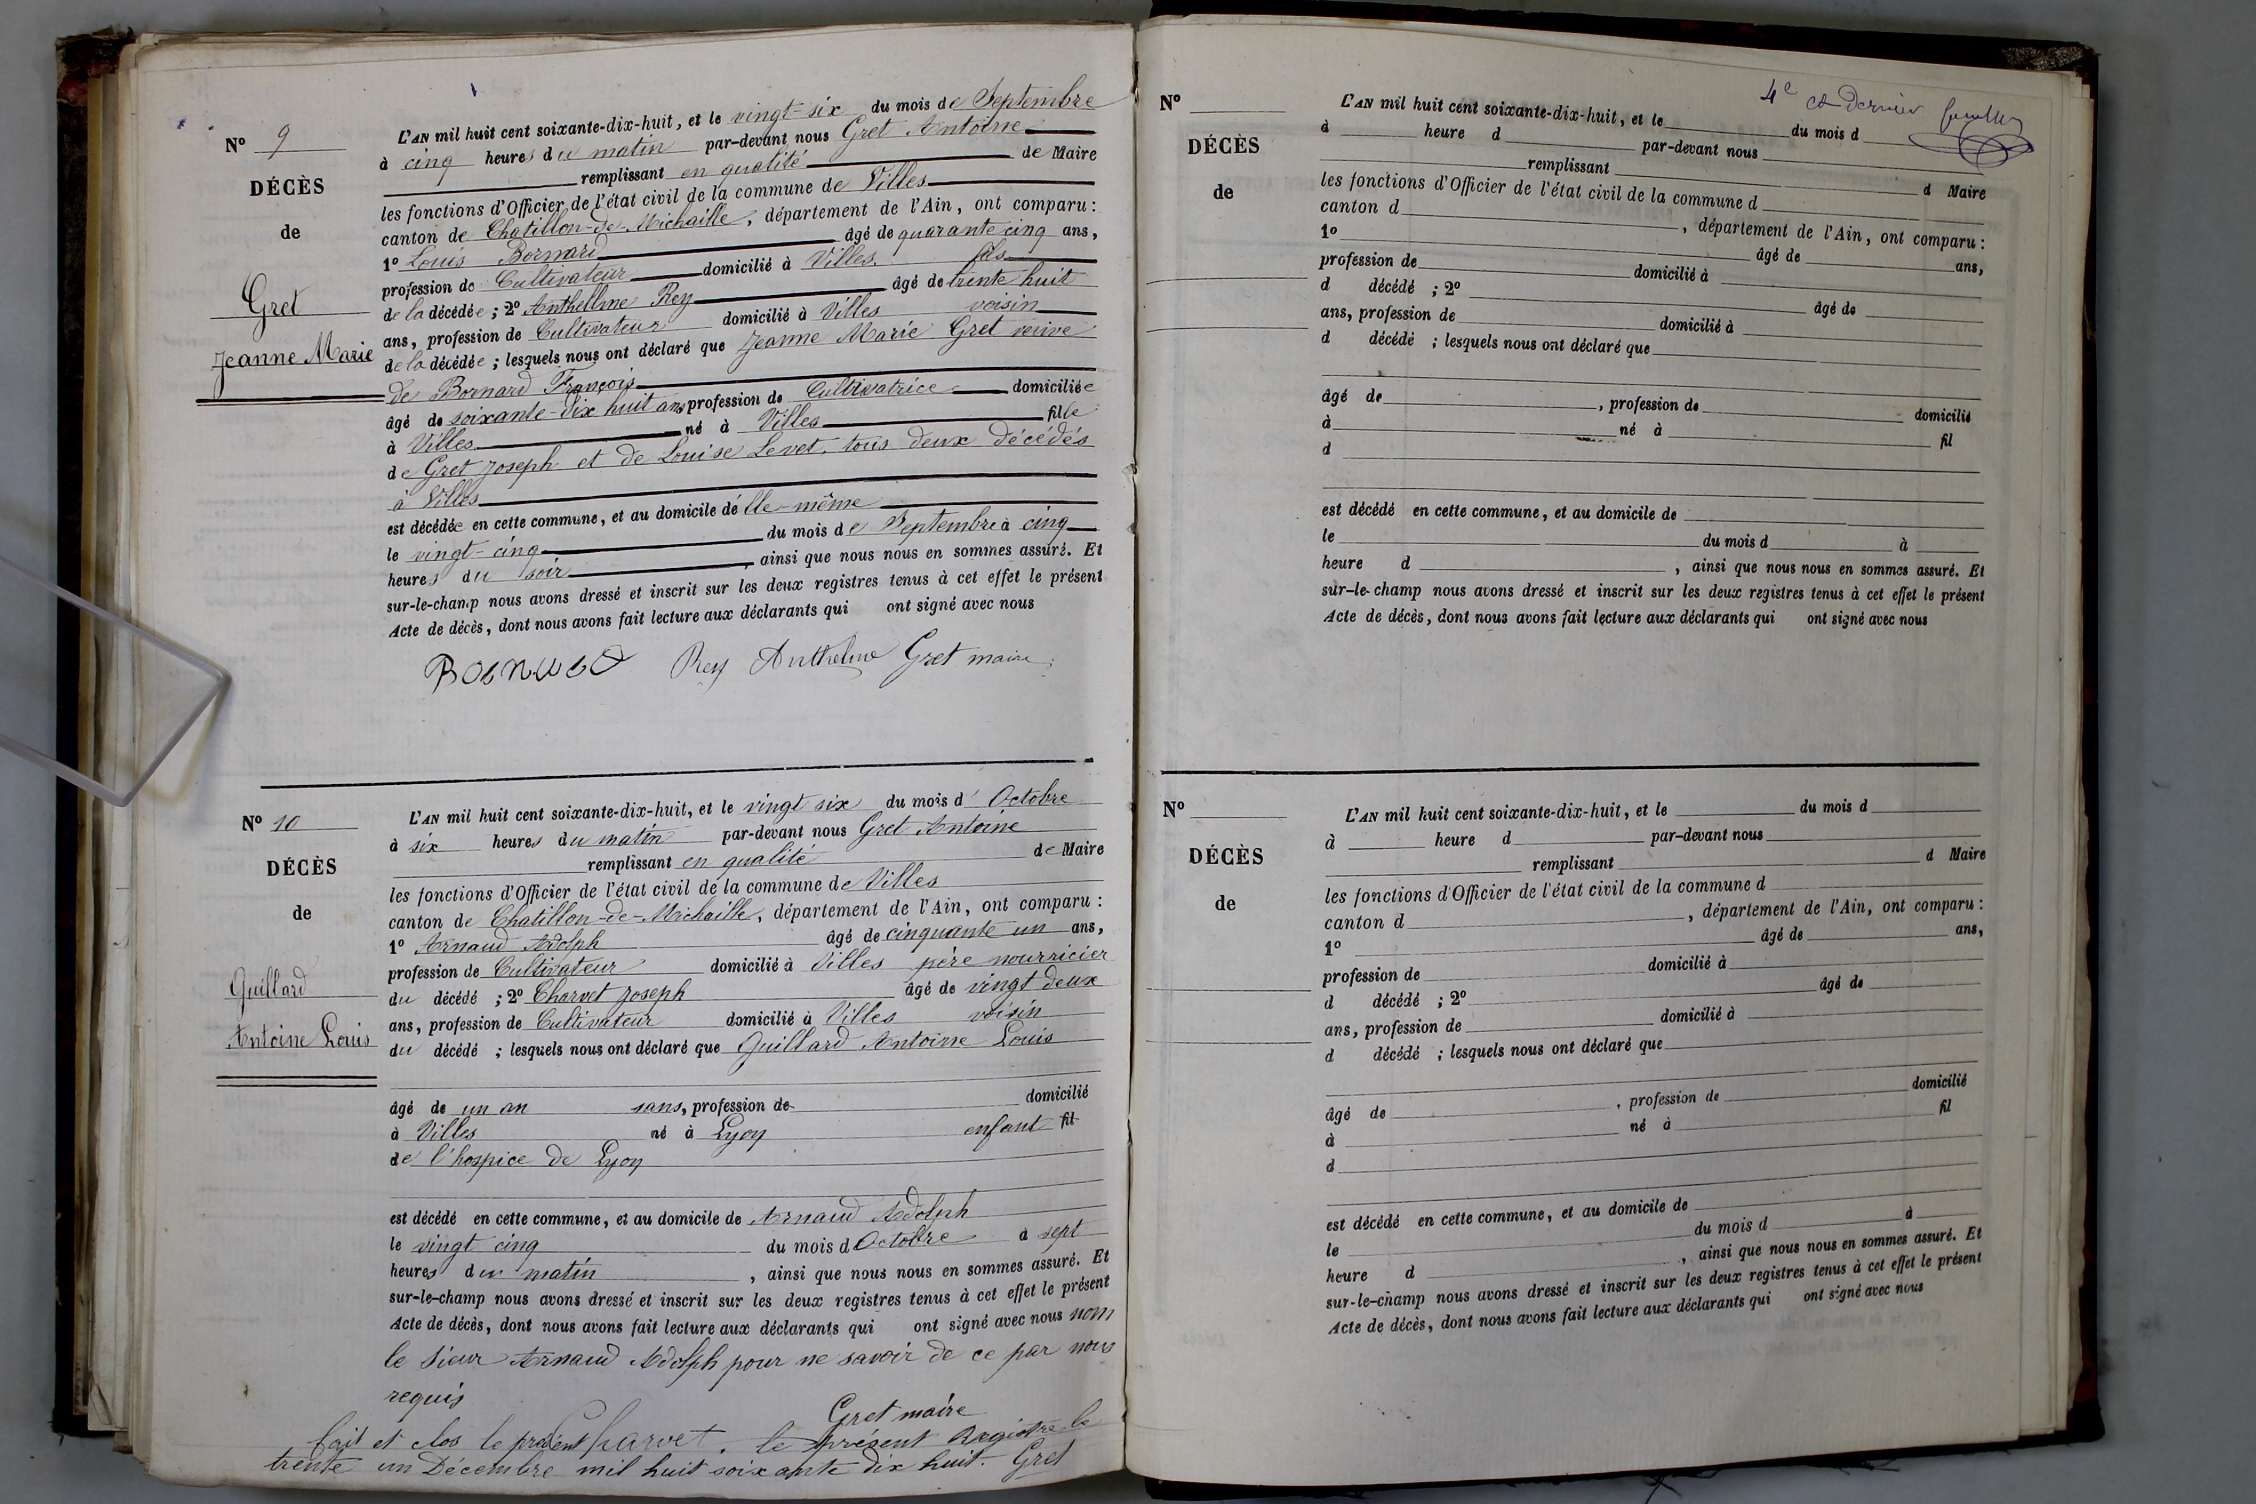 N° 9
DÉCÈS
de
Gret
Jeanne Marie
L'AN mil huit cent soixante-dix-huit, et le vingt-six du mois de Septembre
à cinq heures du matin par-devant nous Gret Antoine
remplissant en qualité de Maire
les fonctions d'Officier de l'état civil de la commune de Villes
canton de Chatillon-de-Michaille, département de l'Ain, ont comparu :
1° Louis Bornard âgé de quarante cinq ans,
profession de Cultivateur domicilié à Villes. fils
de la décédée ; 2° Anthelme Rey âgé de trente huit
ans, profession de Cultivateur domicilié à Villes voisin
de la décédée ; lesquels nous ont déclaré que Jeanne Marie Gret veuve
de Bornard François
âgé de soixante-dix huit ans profession de Cultivatrice domiciliée
à Villes né à Villes fille
de Gret Joseph et de Louise Levet, tous deux décédés
à Villes
est décédée en cette commune, et au domicile d'elle-même
le vingt-cinq du mois de Septembre à cinq
heures du soir, ainsi que nous nous en sommes assuré. Et
sur-le-champ nous avons dressé et inscrit sur les deux registres tenus à cet effet le présent
Acte de décès, dont nous avons fait lecture aux déclarants qui ont signé avec nous
Bornard Rey Anthelme Gret maire
N° 10
DÉCÈS
de
Guillard
Antoine Louis
L'AN mil huit cent soixante-dix-huit, et le vingt six du mois d' Octobre
à six heures du matin par-devant nous Gret Antoine
remplissant en qualité de Maire
les fonctions d'Officier de l'état civil de la commune de Villes
canton de Chatillon-de-Michaille, département de l'Ain, ont comparu :
1° Arnaud Adolph âgé de cinquante un ans,
profession de Cultivateur domicilié à Villes père nourricier
du décédé ; 2° Charvet Joseph âgé de vingt deux
ans, profession de Cultivateur domicilié à Villes voisin
du décédé ; lesquels nous ont déclaré que Guillard Antoine Louis
âgé de un an sans, profession de domicilié
à Villes né à Lyon enfant fil
de l'hospice de Lyon
est décédé en cette commune, et au domicile de Arnaud Adolph
le vingt cinq du mois d Octobre à sept
heures du matin, ainsi que nous nous en sommes assuré. Et
sur-le-champ nous avons dressé et inscrit sur les deux registres tenus à cet effet le présent
Acte de décès, dont nous avons fait lecture aux déclarants qui ont signé avec nous non
le sieur Arnaud Adolph pour ne savoir de ce par nous
requis
Gret maire
fait et clos le présent Charvet. le présent Registre le
trente un Décembre mil huit soixante dix huit. Gret
4e et dernier
N°
DÉCÈS
de
L'AN mil huit cent soixante-dix-huit, et le du mois d
à heure d par-devant nous
remplissant d Maire
les fonctions d'Officier de l'état civil de la commune d
canton d , département de l'Ain, ont comparu :
1° âgé de ans,
profession de domicilié à
d décédé ; 2° âgé de
ans, profession de domicilié à
d décédé ; lesquels nous ont déclaré que
âgé de , profession de domicilié
à né à fil
d
est décédé en cette commune, et au domicile de
le du mois d à
heure d , ainsi que nous nous en sommes assuré. Et
sur-le-champ nous avons dressé et inscrit sur les deux registres tenus à cet effet le présent
Acte de décès, dont nous avons fait lecture aux déclarants qui ont signé avec nous
N°
DÉCÈS
de
L'AN mil huit cent soixante-dix-huit, et le du mois d
à heure d par-devant nous
remplissant d Maire
les fonctions d'Officier de l'état civil de la commune d
canton d , département de l'Ain, ont comparu :
1° âgé de ans,
profession de domicilié à
d décédé ; 2° âgé de
ans, profession de domicilié à
d décédé ; lesquels nous ont déclaré que
âgé de , profession de domicilié
à né à fil
d
est décédé en cette commune, et au domicile de
le du mois d à
heure d , ainsi que nous nous en sommes assuré. Et
sur-le-champ nous avons dressé et inscrit sur les deux registres tenus à cet effet le présent
Acte de décès, dont nous avons fait lecture aux déclarants qui ont signé avec nous